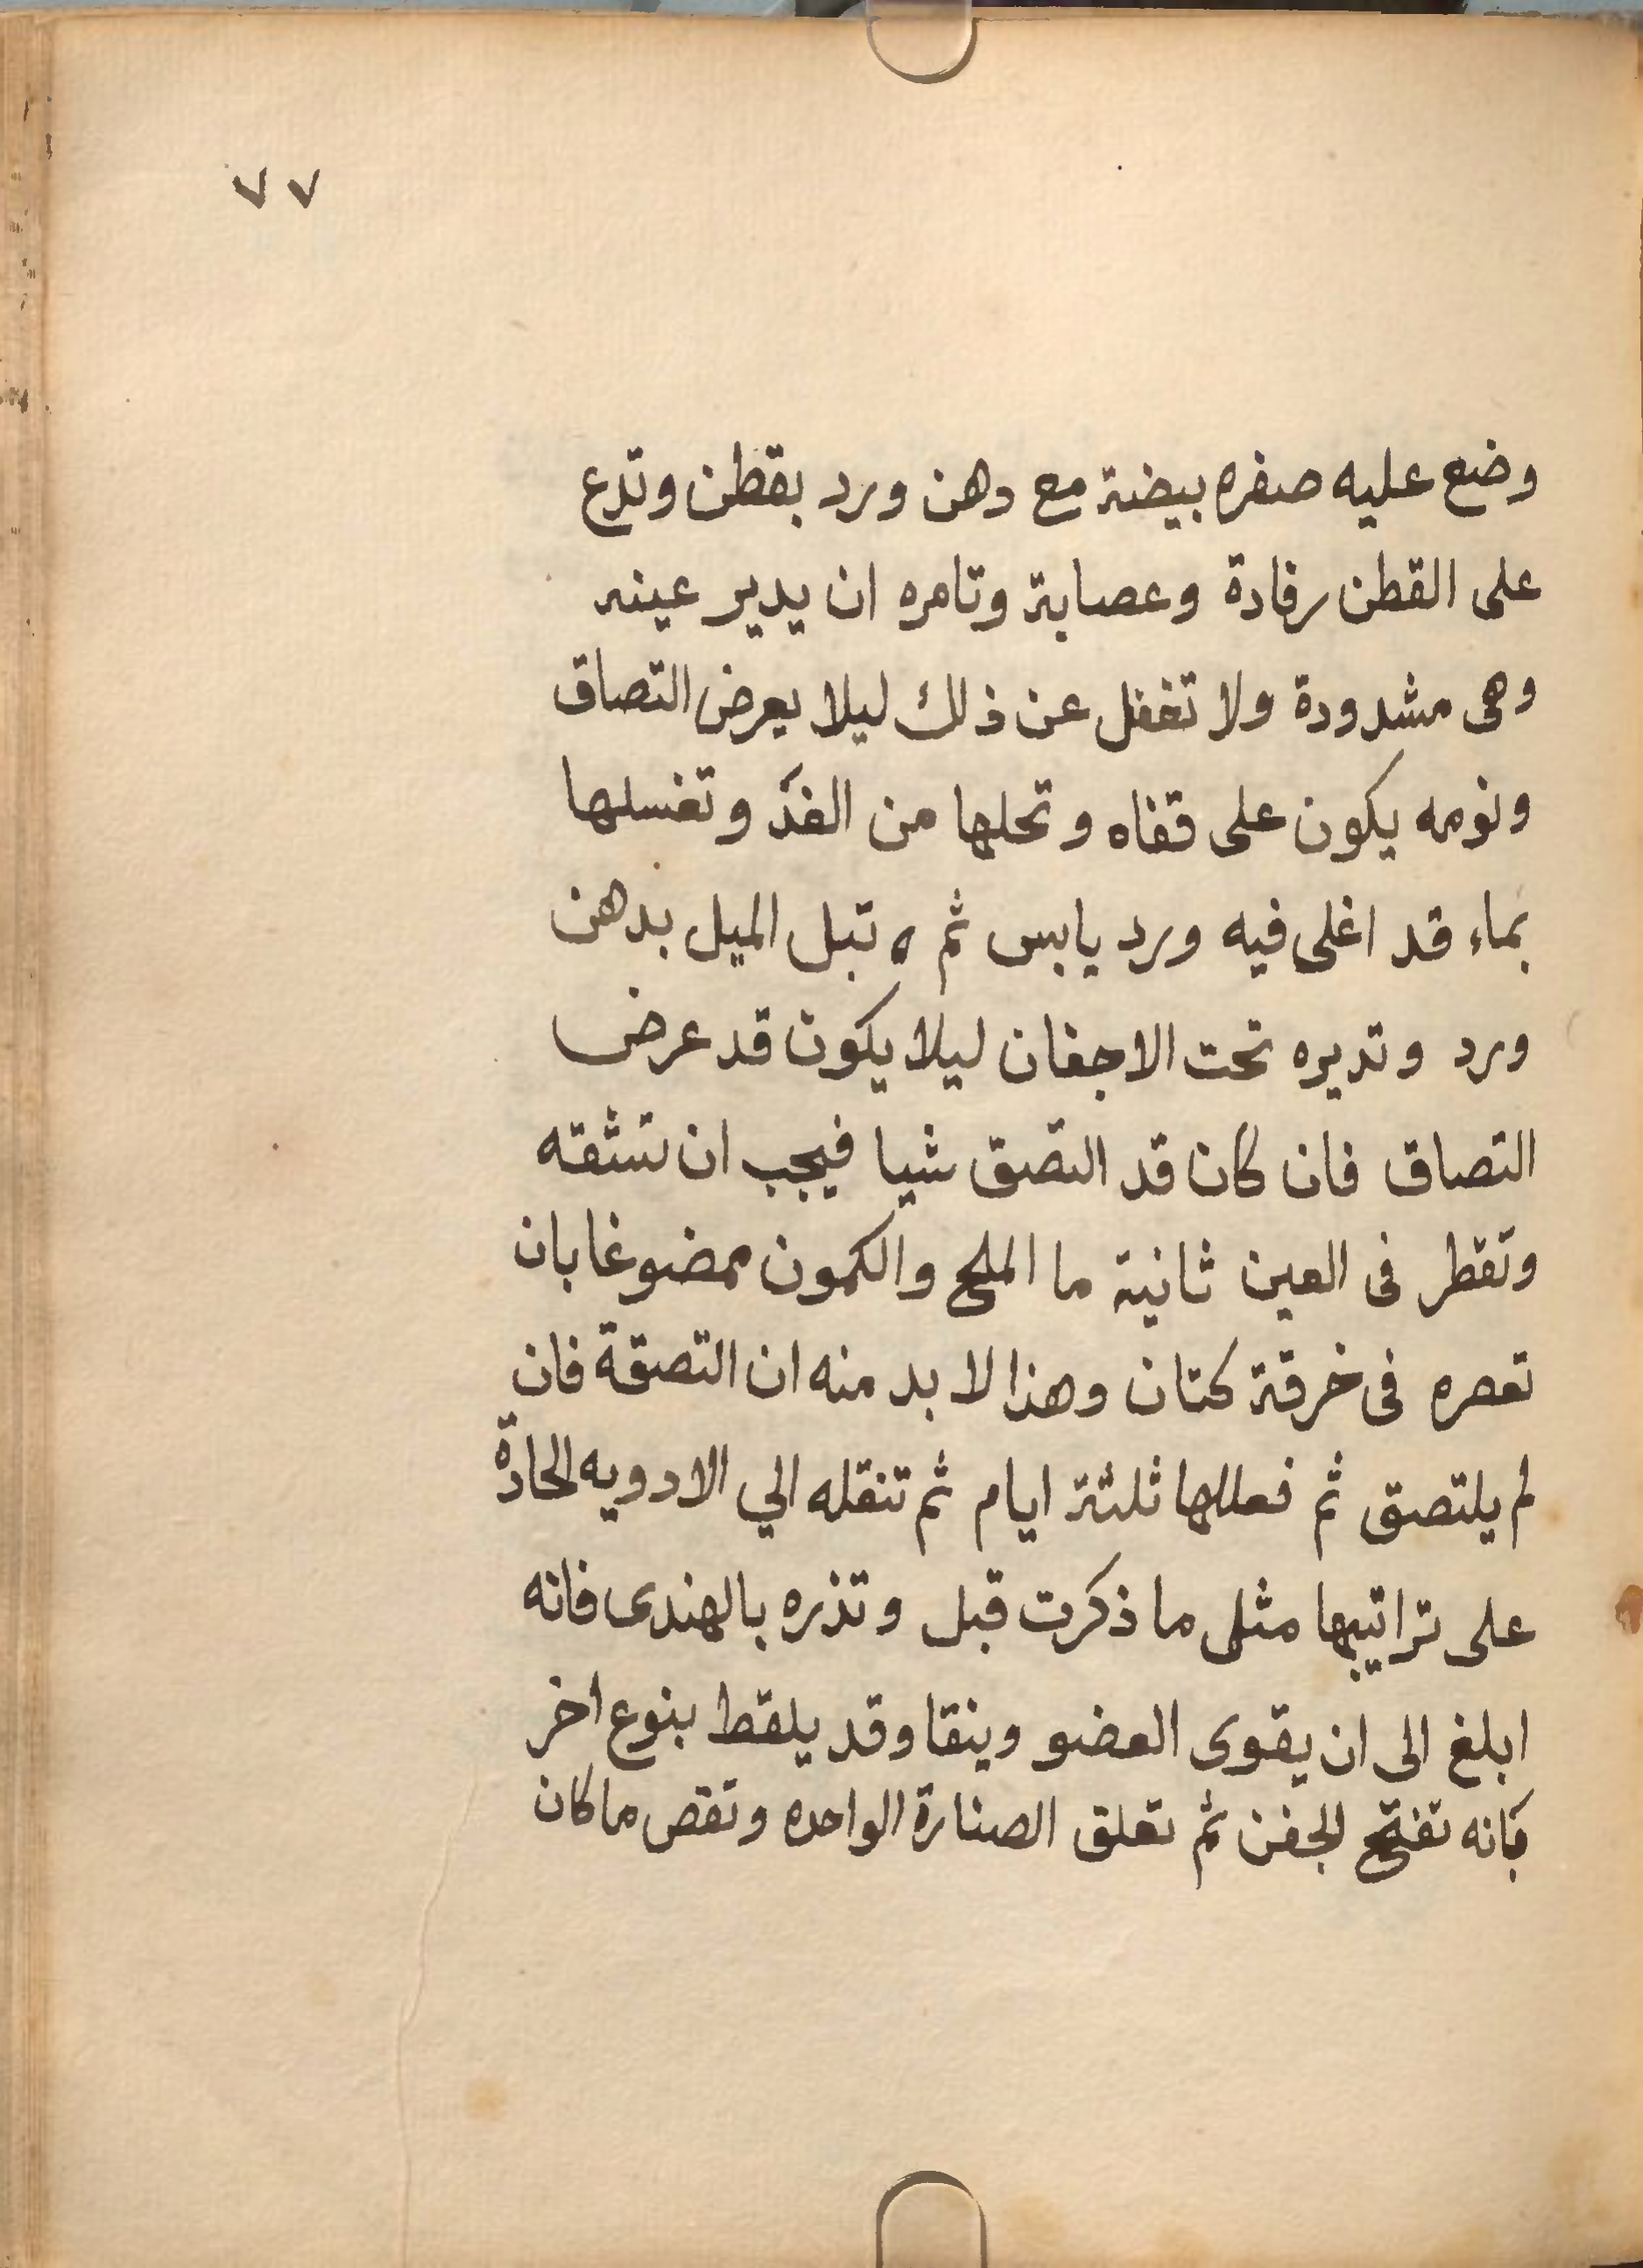 ٧٧
وضع عليه صفره بيضة مع دهن ورد بقطن وتدع
على القطن رفادة وعصابة وتامره ان يدير عينه
وهى مشدودة ولا تغفل عن ذلك ليلا يعرض التصاق
ونومه يكون على قفاه وتحلها من الغد وتغسلها
بماء قد اغلى فيه ورد يابس ثم ه تبل الميل بدهن
ورد وتديره تحت الاجفان ليلا يكون قد عرض
التصاق فان كان قد التصق شيا فيجب ان تشقه
وتقطر فى العين ثانية ما الملح والكمون ممضوغا بان
تعصره فى خرقة كتان وهذا لا بد منه ان التصقة فان
لم يلتصق ثم فعللها ثلثة ايام ثم تنقله الي الادويه الحادة
على تراتيبها مثلى ما ذكرت قبل وتذره بالهندى فانه
ابلغ الى ان يقوى العضو وينقا وقد يلقط بنوع اخر
بانه تفتح الجفن ثم تعلق الصنارة الواحده وتقص ما كان